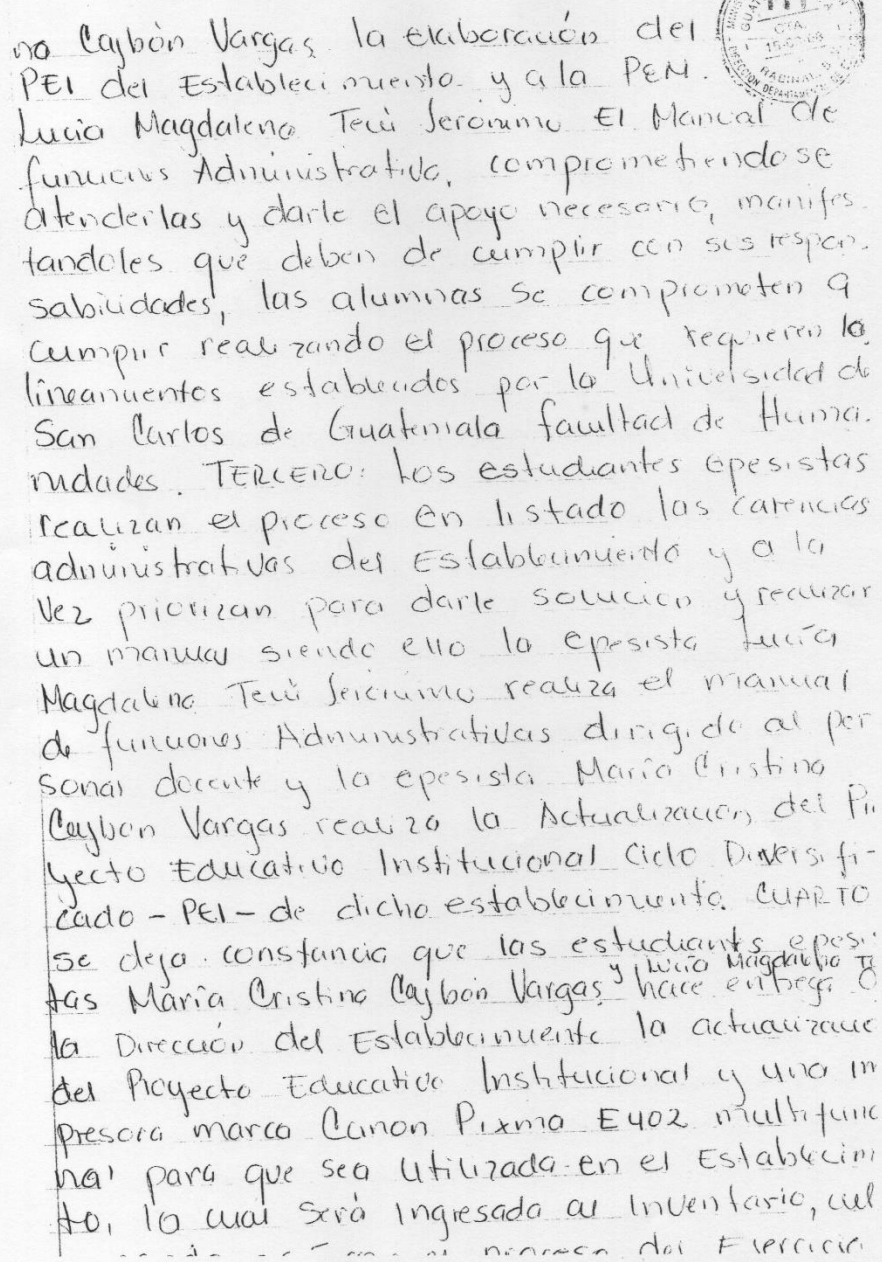 no Cajbón Vargas, la elaboración del
PEI del Establecimiento y a la PEM.
Lucia Magdalena Tecú Jerónimo El Manual de
funciones Administrativa, comprometiendose
atenderlas y darle el apoyo necesario, manifes-
tandoles que deben de cumplir con sus respon-
sabilidades, las alumnas se comprometen a
cumplir realizando el proceso que requieren lo
lineamientos establecidos por la Universidad de
San Carlos de Guatemala facultad de Huma-
nidades. TERCERO: Los estudiantes epesistas
realizan el proceso en listado las carencias
administrativas del Establecimiento y a la
vez priorizan para darle solución y realizar
un manual siendo ello la epesista Lucía
Magdalena Tecú Jerónimo realiza el manual
de funciones Administrativas dirigido al per
sonal docente y la epesista María Cristina
Cajbon Vargas realizo la Actualización del Pr
yecto Educativo Institucional Ciclo Diversifi-
cado - PEI - de dicho establecimiento. CUARTO
se deja constancia que las estudiants epesi
y Lucia Magdalena T
tas María Cristina Cajbón Vargas hace entrega
la Dirección del Establecimiento la actualizació
del Proyecto Educativo Institucional y una im
presora marca Canon Pixma E402 multifunc
na para que sea utilizada en el Establecimi
to, lo cual será ingresada al Inventario, cul
proceso del Ejercicio